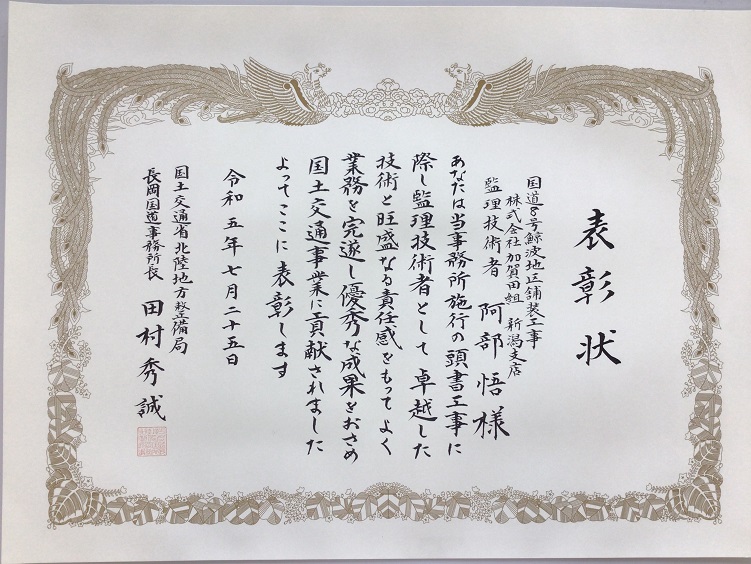 表彰状
国道8号鯨波地区舗装工事
株式会社加賀田組 新潟支店
監理技術者 阿部悟様
あなたは当事務所施行の頭書工事に
際し監理技術者として卓越した
技術と旺盛なる責任感をもってよく
業務を完遂し優秀な成果をおさめ
国土交通事業に貢献されました
よってここに表彰します
令和五年七月二十五日
国土交通省北陸地方整備局
長岡国道事務所長 田村秀誠